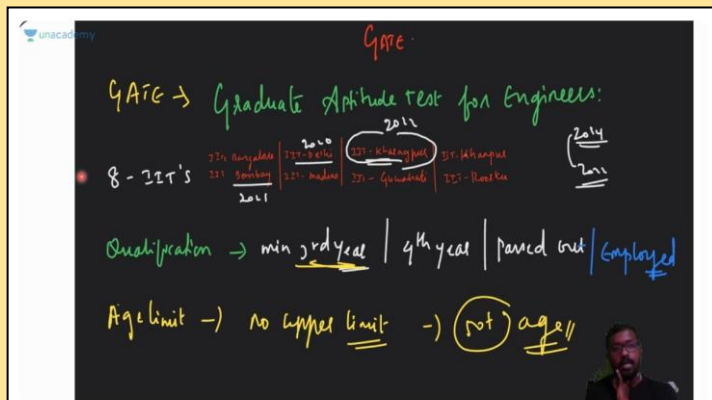 unacademy
GATE
GATE → Graduate Aptitude test for Engineers:
2020 2022
IISc Bangalore | IIT-Delhi | IIT-Kharagpur | IIT-Khanpur
8 - IIT's
IIT Bombay | IIT-madras | IIT-Guwahati | IIT-Rookee
2021
2014
2022
Qualification → min 3rd year | 4th year | passed out | Employed
Age limit → no upper limit → not age